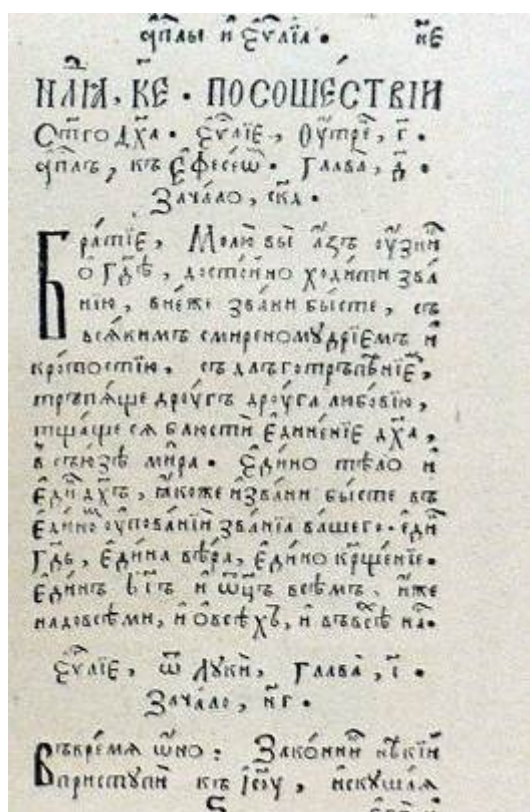 а҆пⷭ҇лы и҆ є҆ѵⷢ҇лїѧ . н҃є
нлⷣѧ, к҃є . посоше́ствїи
ст҃го дх҃а . є҆ѵⷢ҇лїе , ѹ҆́трⷩ҇ее , г҃ .
а҆пⷭ҇лъ , къ є҆фесе́ѡⷨ . глава̀ , д҃ .
Зача́ло , ск҃д .
Бра́тїе , Молю̀ вы̀ а҆́зъ ѹ҆́зни
ѡ҆ гдⷭ҇ѣ , досто́йно ходи́ти зва
нїю , вне́же зва́ни бы́сте , съ
вся́кимъ смиреномѹ́дрїемъ и҆
кро́тостїю , съ дльготръпѣ́нїеⷨ ,
тръпѧ́ще дрѹ́гъ дрѹ́га любо́вїю ,
тща́ще сѧ блюстѝ є҆дине́нїе дх҃а ,
в съю́зѣ ми́ра . Є҆ди́но тѣ́ло и҆
є҆ди́нъ дх҃ъ , ꙗ҆́коже и҆зва́ни бы́сте въ
є҆ди́номъ ѹ҆пова́нїи зва́нїа ва́шего . є҆ди́нъ
гдⷭ҇ь , є҆ди́на вѣ́ра , є҆ди́но кр҃ще́нїе .
є҆ди́нъ бг҃ъ и҆ ѻ҆ц҃ъ всѣ́мъ . и҆́же
надовсѣ́ми , и҆ ѡ҆всѣ́хъ , и҆ въвсѣ́хъ на́съ .
Є҆ѵⷢ҇лїе , ѿ лѹкѝ , глава̀ , і҃ .
Зача́ло , н҃г .
Въвре́мѧ ѻ҆́но : Зако́нникъ нѣ́кїй
пристѹпѝ къ і҆с҃ѹ , и҆скѹша́ѧ